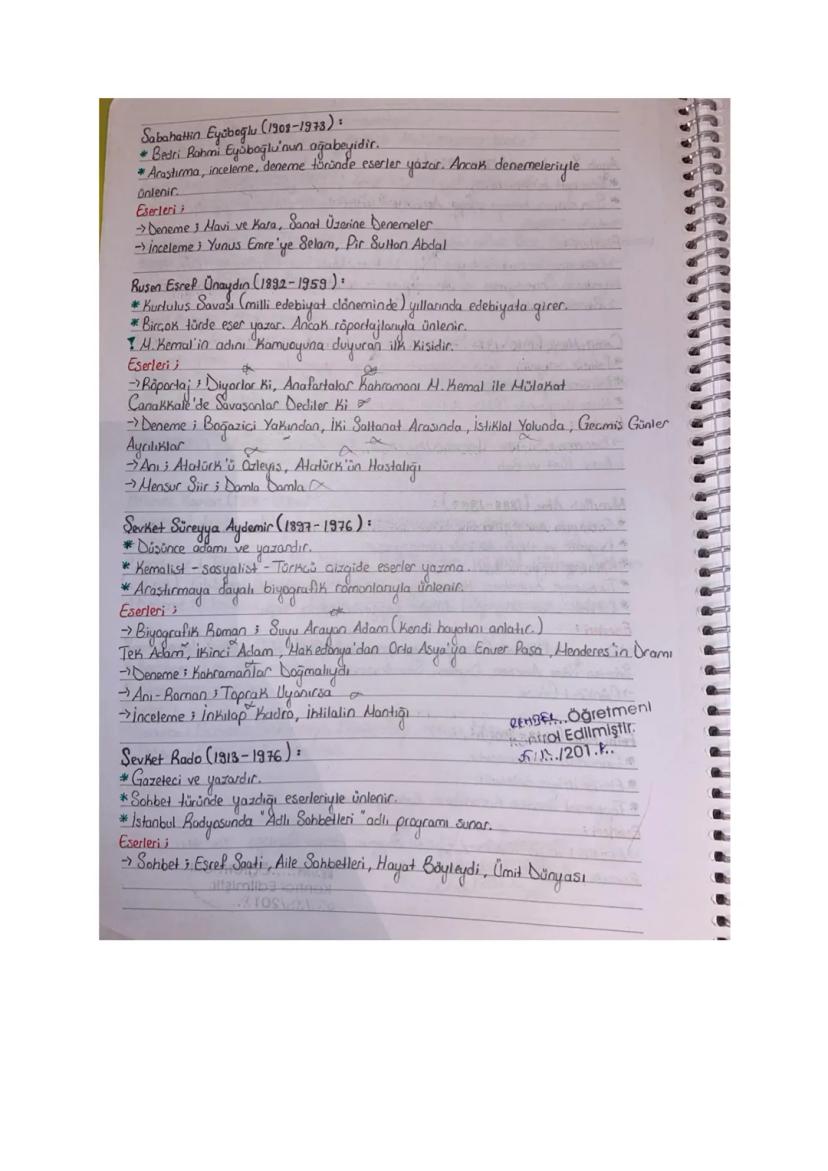 Sabahattin Eyüboğlu (1908-1973) :
* Bedri Rahmi Eyüboğlu'nun ağabeyidir.
* Araştırma, inceleme, deneme türünde eserler yazar. Ancak denemeleriyle
ünlenir.
Eserleri ;
→ Deneme ; Mavi ve Kara, Sanat Üzerine Denemeler
→ İnceleme ; Yunus Emre'ye Selam, Pir Sultan Abdal
Ruşen Eşref Ünaydın (1892-1959) :
* Kurtuluş Savaşı (milli edebiyat döneminde) yıllarında edebiyata girer.
* Birçok türde eser yazar. Ancak röportajlarıyla ünlenir.
! M. Kemal'in adını kamuoyuna duyuran ilk kişidir.
Eserleri ;
→ Röportaj ; Diyorlar Ki, Anafartalar Kahramanı M. Kemal ile Mülakat
Çanakkale'de Savaşanlar Dediler Ki
→ Deneme ; Boğaziçi Yakından, İki Saltanat Arasında, İstiklal Yolunda, Geçmiş Günler
Ayrılıklar
→ Anı ; Atatürk'ü Özleyiş, Atatürk'ün Hastalığı
→ Mensur Şiir ; Damla Damla
Şevket Süreyya Aydemir (1897-1976) :
* Düşünce adamı ve yazardır.
* Kemalist - sosyalist - Türkçü çizgide eserler yazma.
* Araştırmaya dayalı biyografik romanlarıyla ünlenir.
Eserleri ;
→ Biyografik Roman ; Suyu Arayan Adam (kendi hayatını anlatır.)
Tek Adam, İkinci Adam, Makedonya'dan Orta Asya'ya Enver Paşa, Menderes'in Dramı
→ Deneme ; Kahramanlar Doğmalıydı
→ Anı - Roman ; Toprak Uyanırsa
→ İnceleme ; İnkılap Kadro, İhtilalin Mantığı
Öğretmeni
Kontrol Edilmiştir.
/201
Şevket Rado (1913-1976) :
* Gazeteci ve yazardır.
* Sohbet türünde yazdığı eserleriyle ünlenir.
* İstanbul Radyosunda "Adlı Sohbetleri" adlı programı sunar.
Eserleri ;
→ Sohbet ; Eşref Saati, Aile Sohbetleri, Hayat Böyleydi, Ümit Dünyası